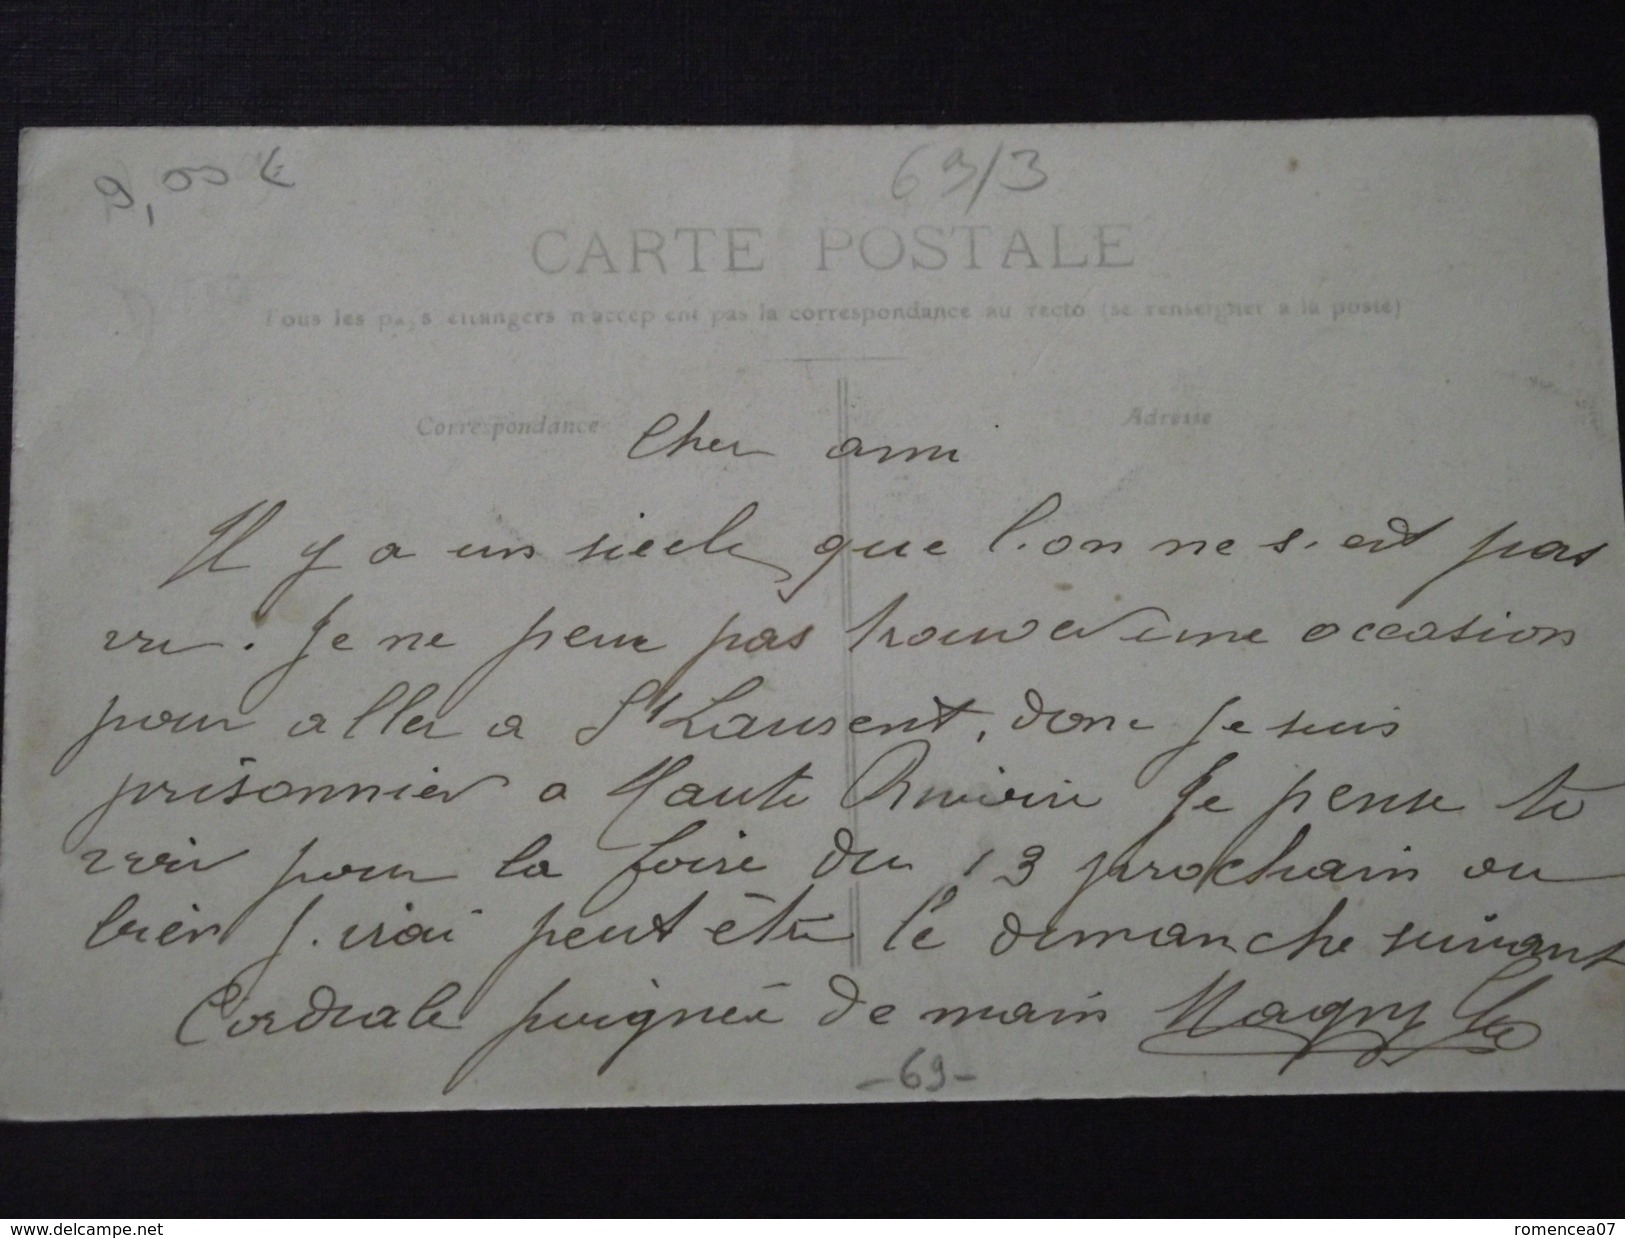 9,00 €
69/3
CARTE POSTALE
Tous les pays étrangers n'acceptent pas la correspondance au recto (se renseigner à la poste)
Correspondance
Adresse
Cher ami
Il y a un siecle que l'on ne s'est pas
vu. Je ne peux pas trouver une occasion
pour aller a St Laurent, donc je suis
prisonnier a Haute Rivoire Je pense te
voir pour la foire du 13 prochain ou
bien j'irai peut être le dimanche suivant
Cordiale poignée de main Magny
-69-
www.delcampe.net
romencea07